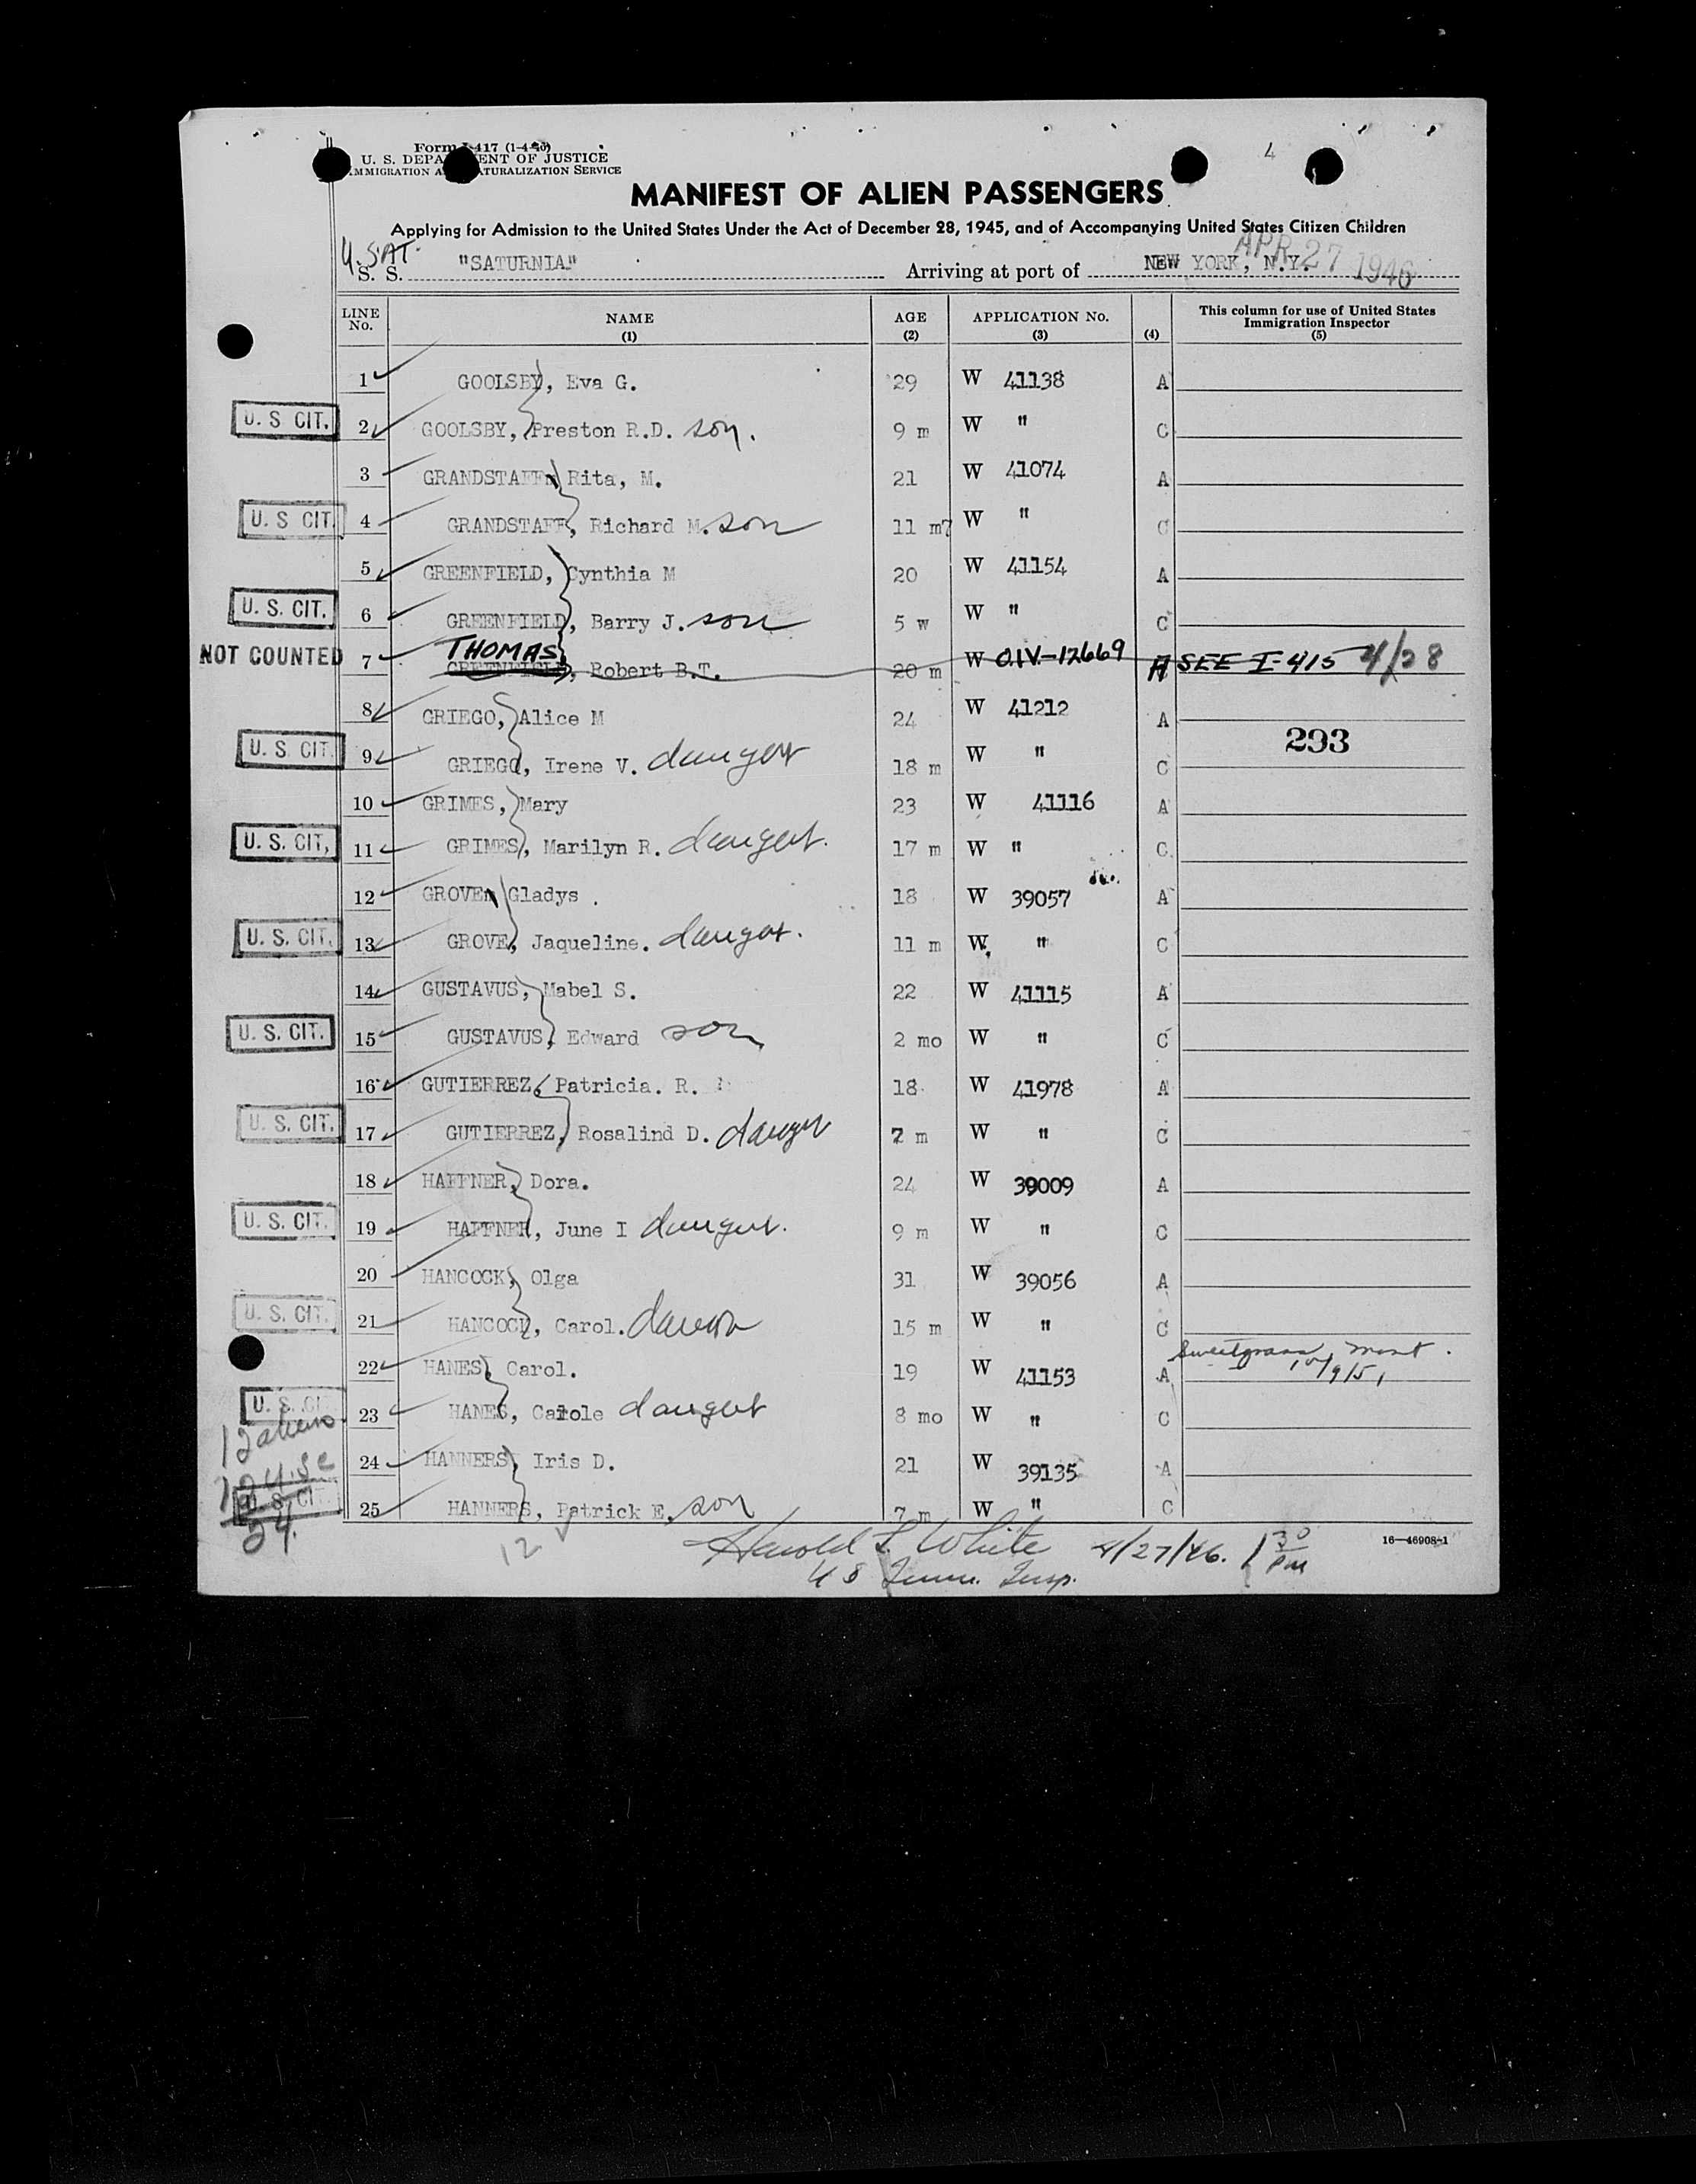 4
Form I-417 (1-4-46)
U. S. DEPARTMENT OF JUSTICE
IMMIGRATION AND NATURALIZATION SERVICE
MANIFEST OF ALIEN PASSENGERS
Applying for Admission to the United States Under the Act of December 28, 1945, and of Accompanying United States Citizen Children
U.S.A.T.
S. S. "SATURNIA" Arriving at port of NEW YORK, N.Y. APR 27 1946
LINE No. NAME (1) AGE (2) APPLICATION No. (3) (4) This column for use of United States Immigration Inspector (5)
1 GOOLSBY, Eva G. 29 W 41138 A
U. S CIT. 2 GOOLSBY, Preston R.D. son. 9 m W " C
3 GRANDSTAFF, Rita, M. 21 W 41074 A
U. S CIT. 4 GRANDSTAFF, Richard M. son 11 m W " C
5 GREENFIELD, Cynthia M 20 W 41154 A
U. S. CIT. 6 GREENFIELD, Barry J. son 5 w W " C
NOT COUNTED 7 THOMAS GREENFIELD, Robert B.T. 20 m W O.I.V.-12669 A SEE I-415 4/28
8 GRIEGO, Alice M 24 W 41212 A
293
U. S. CIT. 9 GRIEGO, Irene V. dauger 18 m W " C
10 GRIMES, Mary 23 W 41116 A
U. S. CIT. 11 GRIMES, Marilyn R. daught. 17 m W " C
12 GROVE, Gladys . 18 W 39057 A
U. S. CIT. 13 GROVE, Jaqueline. daugat. 11 m W. " C
14 GUSTAVUS, Mabel S. 22 W 41115 A
U. S. CIT. 15 GUSTAVUS, Edward son 2 mo W " C
16 GUTIERREZ, Patricia. R. 18 W 41978 A
U. S. CIT. 17 GUTIERREZ, Rosalind D. dauger 7 m W " C
18 HAFFNER, Dora. 24 W 39009 A
U. S. CIT. 19 HAFFNER, June I daugut. 9 m W " C
20 HANCOCK, Olga 31 W 39056 A
U. S. CIT. 21 HANCOCK, Carol. 15 m W " C
22 HANES, Carol. 19 W 41153 A Sweetgrass, Mont. 10/9/51
U. S. CI 23 HANES, Carole daugut 8 mo W " C
12 aliens
24 HANNERS, Iris D. 21 W 39135 A
12 U.S.C
U. S. CIT. 25 HANNERS, Patrick E. son 7 m W " C
24.
12 Harold L. White 4/27/46. 1 30 PM
16—46908-1
U S Imm. Insp.